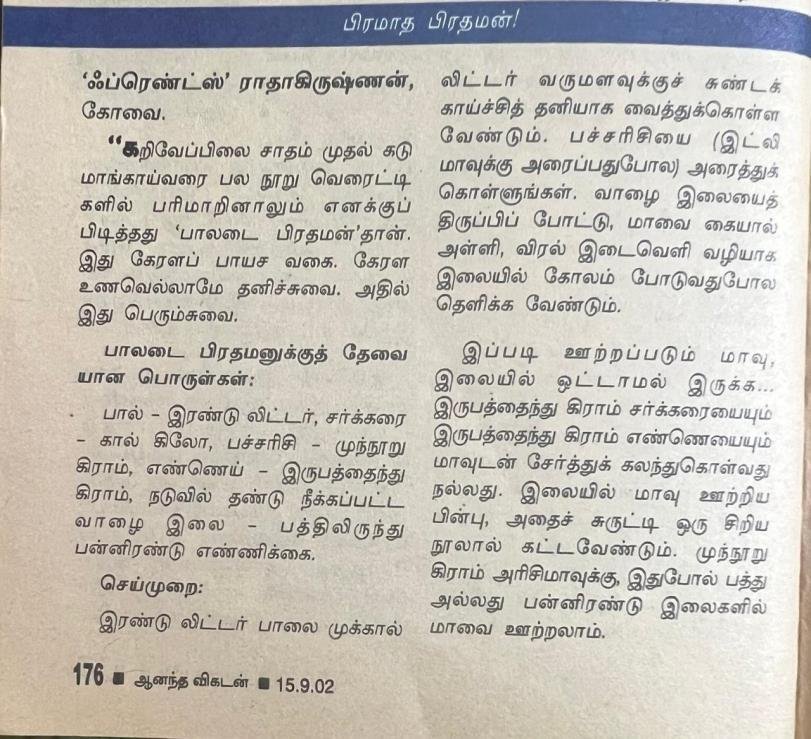 பிரமாத பிரதமன்!
‘ஃப்ரெண்ட்ஸ்’ ராதாகிருஷ்ணன்,
கோவை.
“கறிவேப்பிலை சாதம் முதல் கடு
மாங்காய்வரை பல நூறு வெரைட்டி
களில் பரிமாறினாலும் எனக்குப்
பிடித்தது ‘பாலடை பிரதமன்’தான்.
இது கேரளப் பாயச வகை. கேரள
உணவெல்லாமே தனிச்சுவை. அதில்
இது பெரும்சுவை.
பாலடை பிரதமனுக்குத் தேவை
யான பொருள்கள்:
பால் – இரண்டு லிட்டர், சர்க்கரை
– கால் கிலோ, பச்சரிசி – முந்நூறு
கிராம், எண்ணெய் – இருபத்தைந்து
கிராம், நடுவில் தண்டு நீக்கப்பட்ட
வாழை இலை – பத்திலிருந்து
பன்னிரண்டு எண்ணிக்கை.
செய்முறை:
இரண்டு லிட்டர் பாலை முக்கால்
லிட்டர் வருமளவுக்குச் சுண்டக்
காய்ச்சித் தனியாக வைத்துக்கொள்ள
வேண்டும். பச்சரிசியை (இட்லி
மாவுக்கு அரைப்பதுபோல) அரைத்துக்
கொள்ளுங்கள். வாழை இலையைத்
திருப்பிப் போட்டு, மாவை கையால்
அள்ளி, விரல் இடைவெளி வழியாக
இலையில் கோலம் போடுவதுபோல
தெளிக்க வேண்டும்.
இப்படி ஊற்றப்படும் மாவு,
இலையில் ஒட்டாமல் இருக்க...
இருபத்தைந்து கிராம் சர்க்கரையையும்
இருபத்தைந்து கிராம் எண்ணெயையும்
மாவுடன் சேர்த்துக் கலந்துகொள்வது
நல்லது. இலையில் மாவு ஊற்றிய
பின்பு, அதைச் சுருட்டி ஒரு சிறிய
நூலால் கட்டவேண்டும். முந்நூறு
கிராம் அரிசிமாவுக்கு, இதுபோல் பத்து
அல்லது பன்னிரண்டு இலைகளில்
மாவை ஊற்றலாம்.
176 ■ ஆனந்த விகடன் ■ 15.9.02